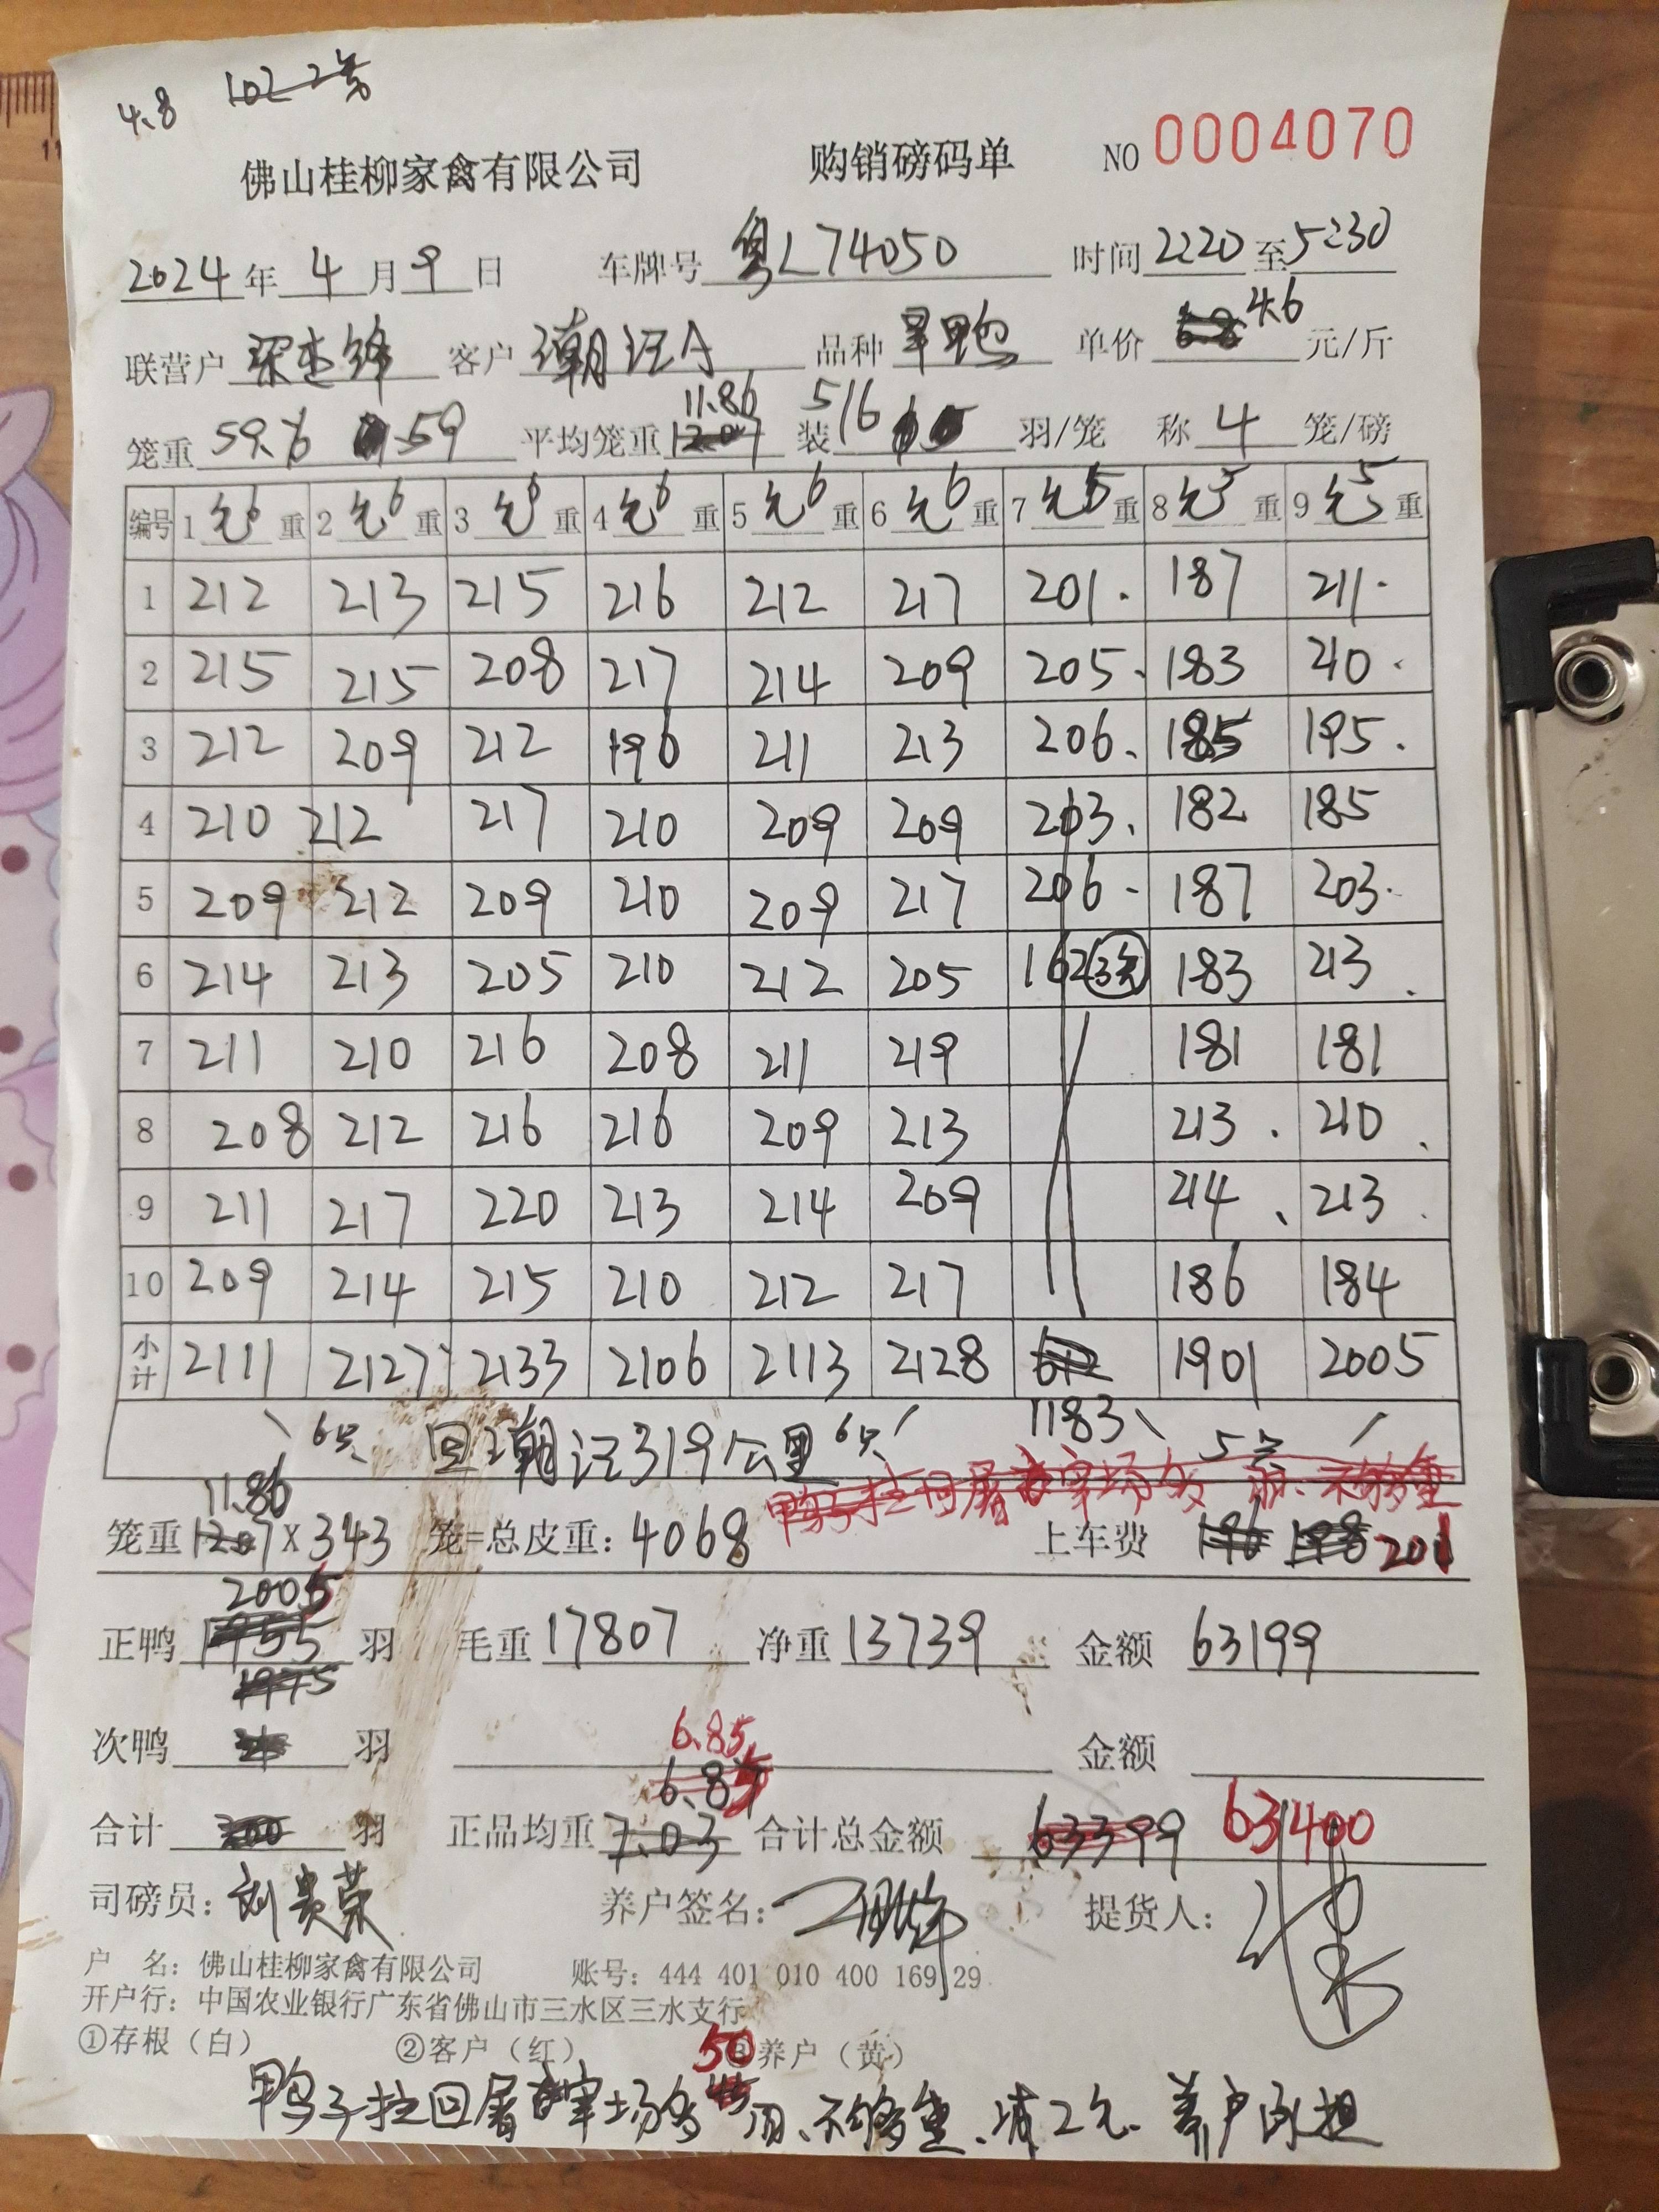 4.8 102-2筹
佛山桂柳家禽有限公司 购销磅码单 NO 0004070
2024年4月9日 车牌号 粤L74050 时间 2:20 至 5:30
联营户 客户 潮汪A 品种 旱鸭 单价 6.8 4.6 元/斤
笼重 59.6 59 平均笼重 12.07 11.86 装 5/6 羽/笼 称 4 笼/磅
编号 1 重 2 重 3 重 4 重 5 重 6 重 7 重 8 重 9 重
1 212 213 215 216 212 217 201. 187 211.
2 215 215 208 217 214 209 205. 183 210.
3 212 209 212 196 211 213 206. 185 195.
4 210 212 217 210 209 209 203. 182 185
5 209 212 209 210 209 217 206. 187 203.
6 214 213 205 210 212 205 162 183 213.
7 211 210 216 208 211 219 181 181
8 208 212 216 216 209 213 213. 210.
9 211 217 220 213 214 209 214. 213.
10 209 214 215 210 212 217 186 184
小计 2111 2127 2133 2106 2113 2128 1183 1901 2005
6只 回潮汪319公里 6只 5只
鸭子拉回屠宰场 不够重
笼重 12.07 11.86 x 343 笼=总皮重：4068 上车费 196 198 201
正鸭 1955 1975 2005 羽 毛重 17807 净重 13739 金额 63199
次鸭 羽 金额
6.85
合计 羽 正品均重 7.03 6.85 合计总金额 63399 63400
司磅员：刘贵荣 养户签名： 提货人：
户 名：佛山桂柳家禽有限公司 账号：444 401 010 400 169 29
开户行：中国农业银行广东省佛山市三水区三水支行
①存根（白） ②客户（红） ③养户（黄）
50
鸭子拉回屠宰场多 羽、不够重、减2元、养户承担